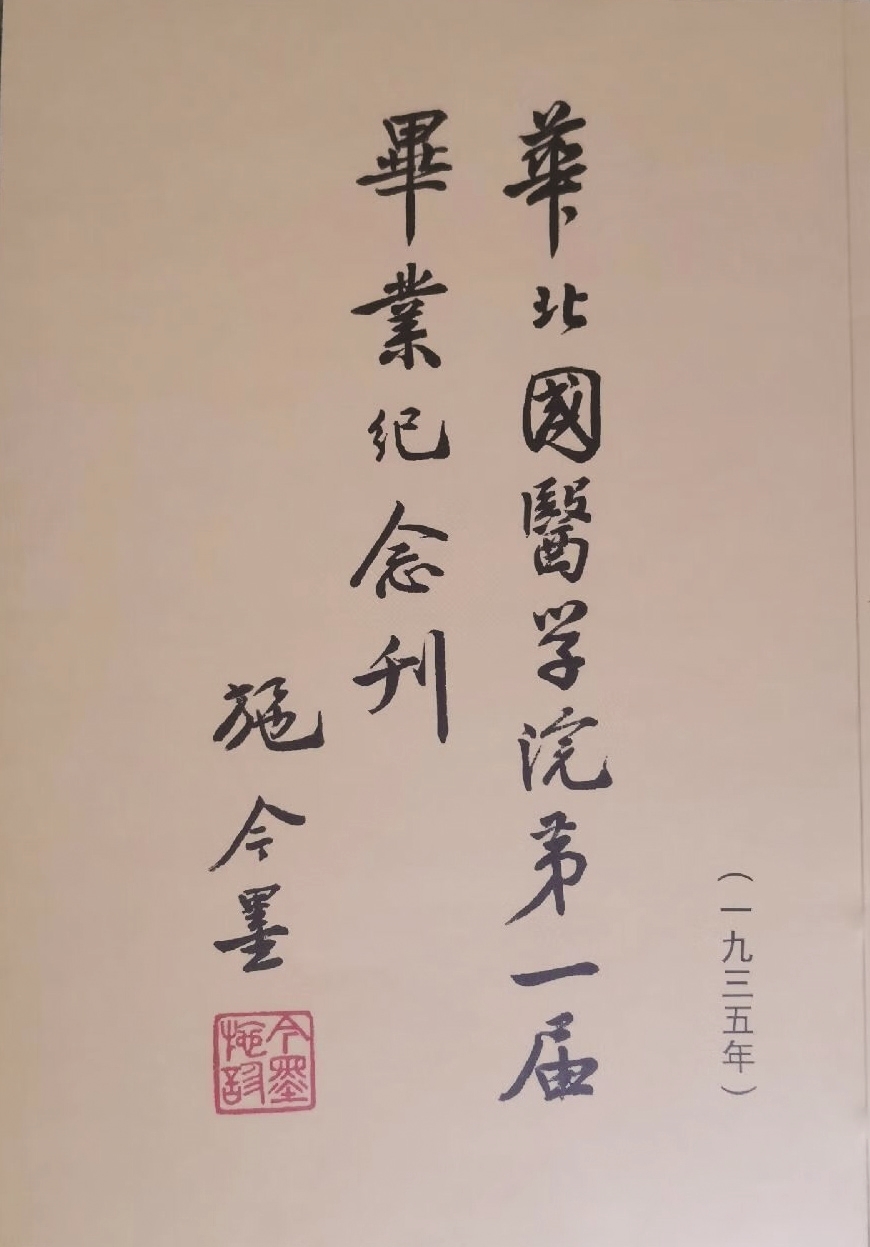 （一九三五年）
華北國醫学院第一届
畢業纪念刊
施今墨
今墨